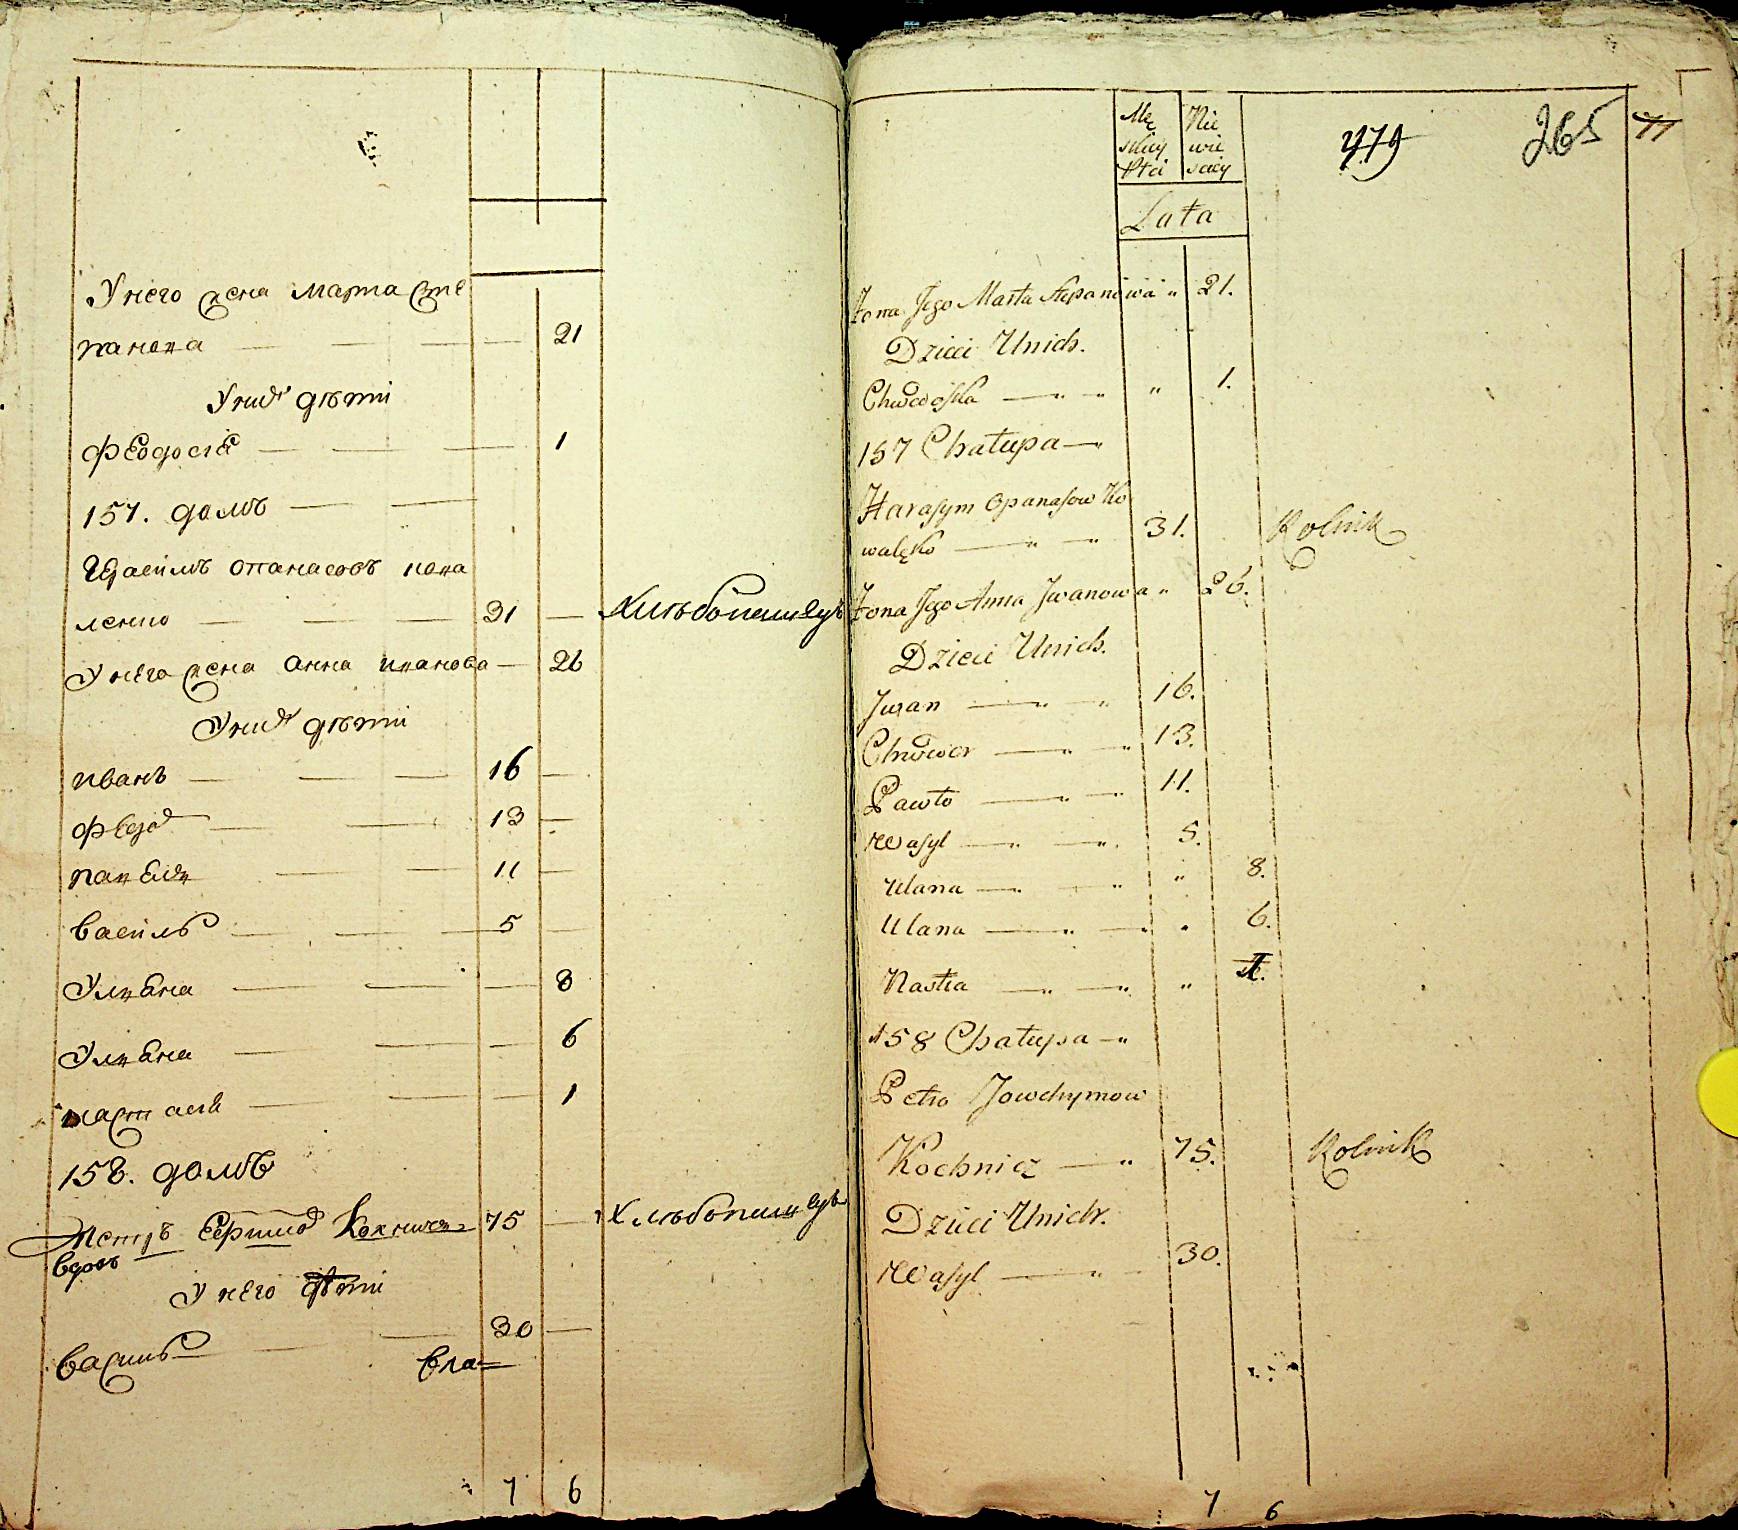 У него жена Марта Сте
панова — — — — 21
У них дѣти
Феодосія — — — 1
157. домъ — —
Герасимъ Опанасовъ Кова
ленко — — — 31 — Хлѣбопашецъ
У него жена Анна Иванова — 26
У них дѣти
Иванъ — — — 16 —
Федор — — 13 —
Павелъ — — 11 —
Василь — — 5 —
Улвяна — — — 8
Улвяна — — — 6
Настасія — — — 1
158. домъ
Петръ Ефимов Кохнича 75 — Хлѣбопашецъ
вдовъ
У него дѣти
Василь — — 30 —
Вла=
7 6
Mę Nie
skiey wie
Płci sciey
479 265 77
Lata
Żona Jego Marta Stepanowa " 21.
Dzieci Unich.
Chwedośka — " " " 1.
157 Chałupa — "
Harasym Opanasow Ko
walęko — " " 31. Rolnik
Żona Jego Anna Jwanowa " 26.
Dzieci Unich.
Jwan — " " 16.
Chwedor — " " 13.
Pawło — " — " 11.
Wasyl — " — " 5.
Ulana — " — " " 8.
Ulana — " — " " 6.
Nastia — " — " " 1.
158 Chałupa — "
Petro Jowchymow
Kochnicz — " 75. Rolnik
Dzieci Unich.
Wasyl — " — 30.
7 6